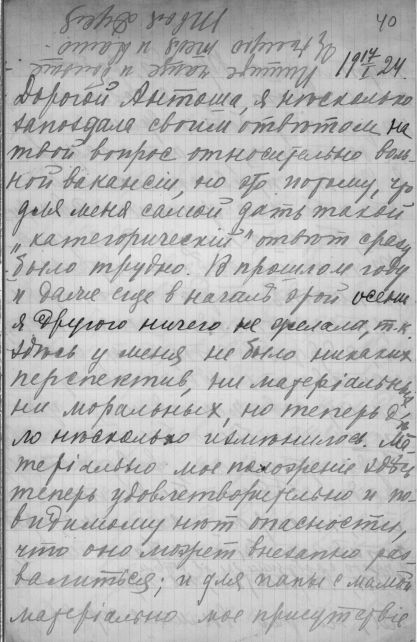 40
Твоя Дуся
Целую тебя и Колю
Пишите чаще и больше
19 17/I 24.
Дорогой Антоша, я нѣсколько
запоздала своим отвѣтом на
твой вопрос относительно воль-
ной вакансіи, но это потому, что
для меня самой дать такой
„категорическій" отвѣт сразу
было трудно. В прошлом году
и даже еще в началѣ этой осени
я другого ничего не желала, т.к.
здѣсь у меня не было никаких
перспектив, ни матеріальных
ни моральных, но теперь дѣ-
ло нѣсколько измѣнилось. Ма-
теріально мое положеніе здѣсь
теперь удовлетворительно и по
видимому нѣт опасности,
что оно может внезапно раз-
валиться; и для папы с мамой
матеріально мое присутствіе